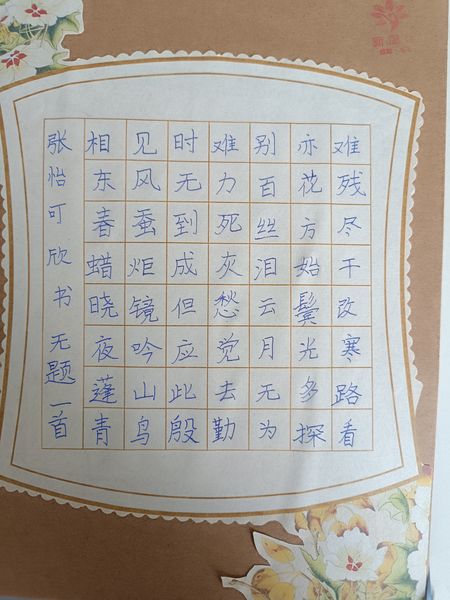 相见时难别亦难
东风无力百花残
春蚕到死丝方尽
蜡炬成灰泪始干
晓镜但愁云鬓改
夜吟应觉月光寒
蓬山此去无多路
青鸟殷勤为探看
张怡可欣书 无题一首